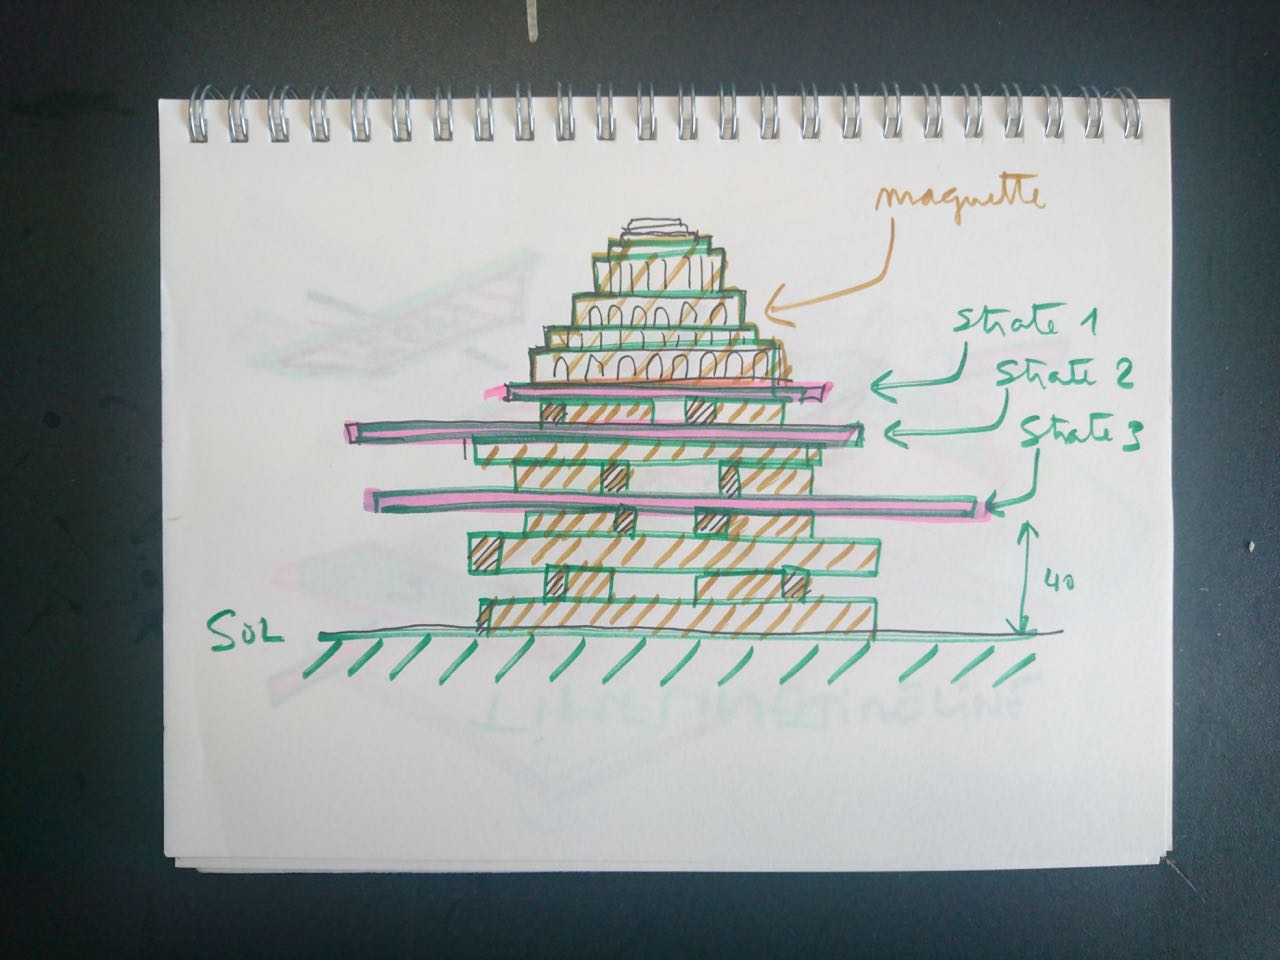 maquette
Strate 1
Strate 2
Strate 3
40
SOL